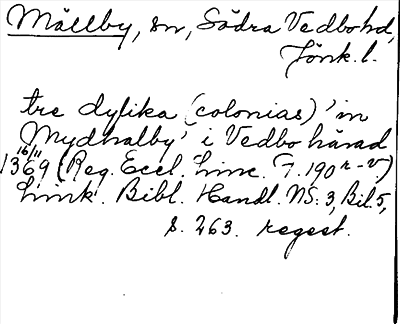 Mällby, sn, Södra Vedbo hd,
Jönk. l.
tre dylika (colonias) 'in
Mydhalby' i Vedbo härad
16/11
1369 (Reg. Eccl. Linc. F. 190 r-v)
Link. Bibl. Handl. NS: 3, Bil. 5,
s. 263. regest.